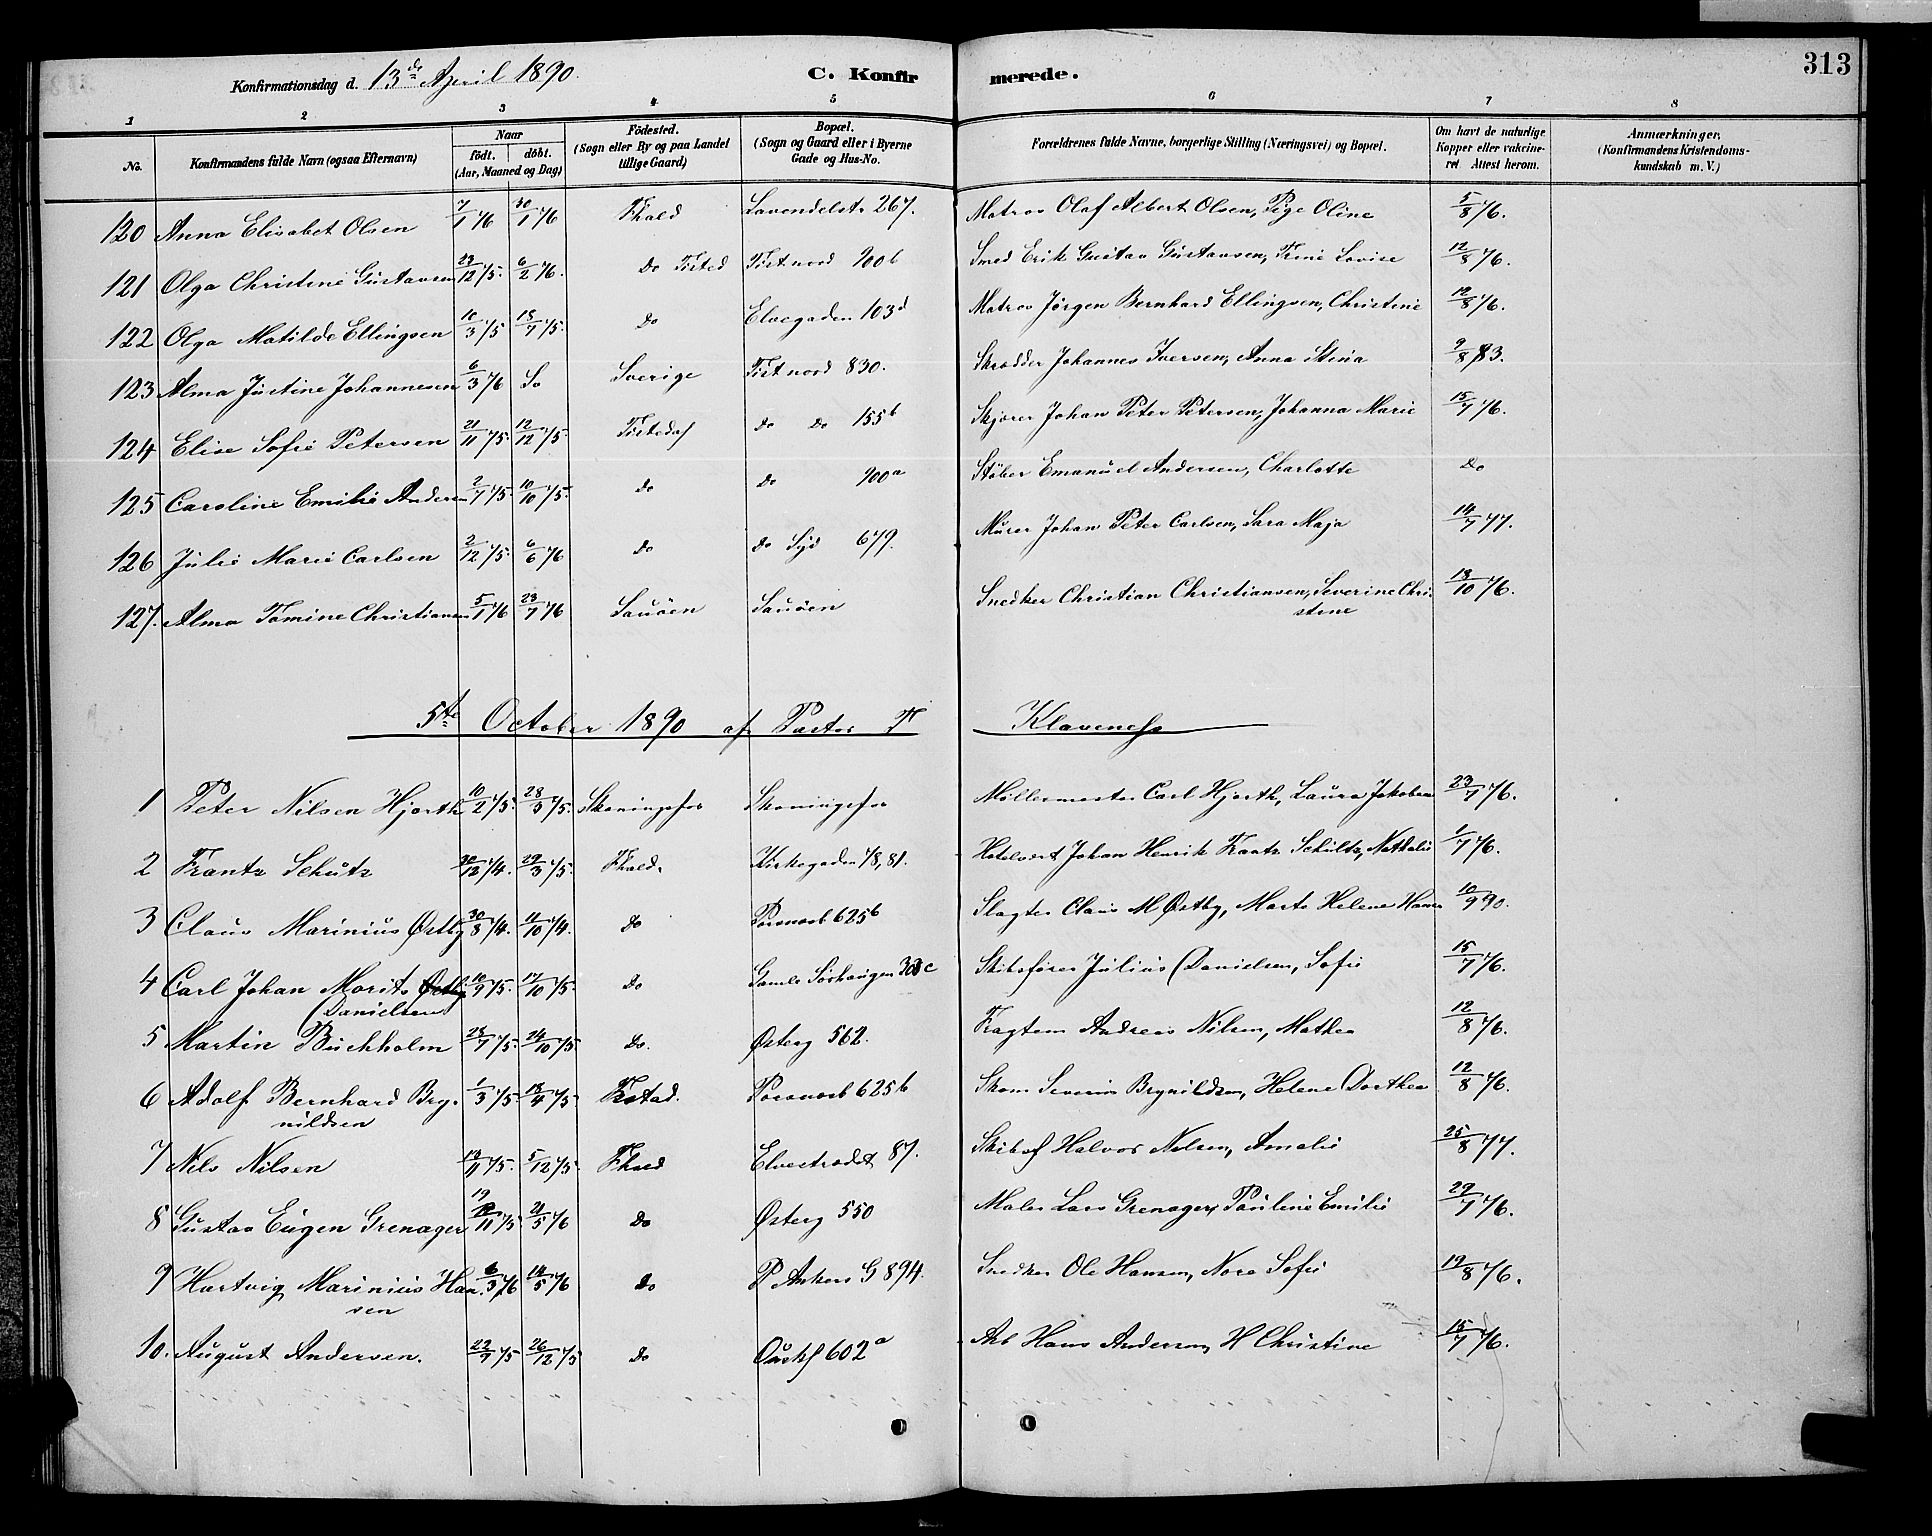 Konfirmationsdag d. 13de April 1890. C. Konfirmerede. 313
1 2 3 4 5 6 7 8
No. Konfirmandens fulde Navn (ogsaa Efternavn) Naar født. døbt. (Aar, Maaned og Dag) Födested. (Sogn eller By og paa Landet tillige Gaard) Bopæl. (Sogn og Gaard eller i Byerne Gade og Hus-No. Forældrenes fulde Navne, borgerlige Stilling (Næringsvei) og Bopæl. Om havt de naturlige Kopper eller vakcineret Attest herom. Anmærkninger, (Konfirmandens Kristendomskundskab m. V.)
120 Anna Elisabet Olsen 7/1 76 30/1 76 Fhald Lavendelstr 267. Matros Olaf Albert Olsen, Pige Oline 5/8 76.
121 Olga Christine Gustavsen 23/12 75. 6/2 76. do Tisted Tist nord 900b Smed Erik Gustav Gustavsen, Trine Lovise 12/8 76.
122 Olga Matilde Ellingsen 10/3 75 18/7 75. do Elvegaden 103d Matros Jörgen Bernhard Ellingsen, Christine 12/8 76.
123 Alma Justine Johannesen 6/3 76 So Sverige Tist nord 830. Skrædder Johannes Iversen, Anna Stina 9/8 83.
124 Elise Sofie Petersen 21/11 75. 12/12 75. Tistedal do do 155b Skjærer Johan Peter Petersen, Johanna Marie 15/7 76.
125 Caroline Emilie Andersen 2/7 75. 10/10 75. do do 900a Stöber Emanuel Andersen, Charlotte do
126 Julie Marie Carlsen 2/12 75. 6/6 76 do do Syd 679. Murer Johan Peter Carlsen, Sara Maja 14/7 77.
127. Alma Tomine Christiansen 5/1 76 23/7 76 Sauöen Sauöen Snedker Christian Christiansen, Severine Chri 13/10 76.
stine
5te October 1890 af Pastor T Klaveness
1 Peter Nilsen Hjorth 10/2 75. 28/3 75. Skoningsfos Skoningsfos Möllermester Carl Hjorth, Laura Jakobsen 23/7 76.
2 Frantz Schütz 30/12 74. 29/3 75. Fhald. Kirkegaden 78, 81. Hotelvert Johan Henrik Frantz Schültz, Nathalie 1/7 76.
3 Claus Marinius Østby 30/8 74. 11/10 74. do Porsnesb 625b Slagter Claus M Østby, Marte Helene Hans 10/9 90.
4 Carl Johan Morits 10/9 75. 17/10 75. do Gamle Sörhaugen 308c Skibsförer Julius Danielsen, Sofie 15/7 76.
Danielsen
5 Martin Buckholm 28/7 75. 24/10 75 do. Østerg 562. Fragtem Andreas Nilsen, Mathea 12/8 76.
6 Adolf Bernhard Bry- 1/3 75 18/4 75 Fstad. Porsnesb 625b Skom Severin Brynildsen, Helene Dorthea 12/8 76.
nildsen
7 Nils Nilsen 13/11 75. 5/12 75 Fhald Elvestrædet 87. Skibsf Halvor Nilsen, Amalie 25/8 77.
8 Gustav Eugen Grenager 19/11 75 21/5 76 do Østerg 550 Maler Lars Grenager, Pauline Emilie 29/7 76.
9 Hartvig Marinius Han 6/3 76 14/5 76 do P Ankers G 894. Snedker Ole Hansen, Nora Sofie 19/8 76.
sen
10. August Andersen. 22/9 75 26/12 75 do 602a Arb Hans Andersen, H Christine 15/7 76.